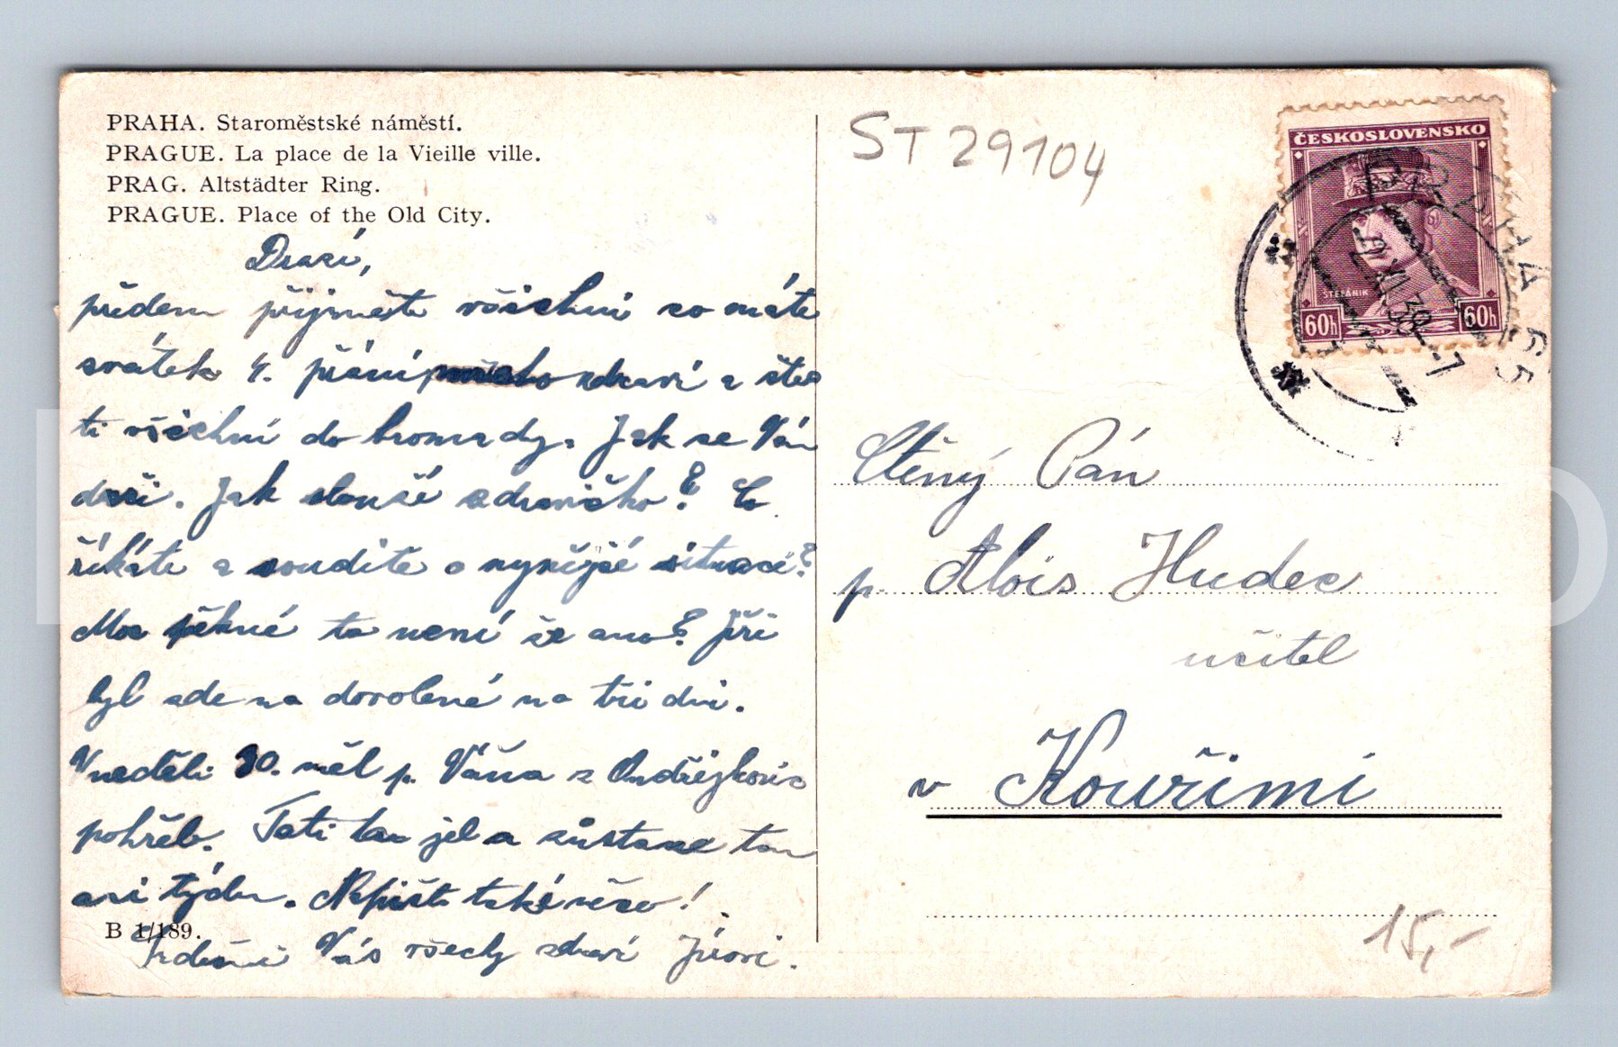 PRAHA. Staroměstské náměstí.
PRAGUE. La place de la Vieille ville.
PRAG. Altstädter Ring.
PRAGUE. Place of the Old City.
Drazí,
předem přijměte všichni co máte
svátek 4. přání zdraví a štěs
tí všichni do hromady. Jak se Vám
daří. Jak slouží zdravíčko? Co
říkáte a soudíte o nynější situaci?
Moc pěkné to není že ano? Jiří
byl zde na dovolené na tři dni.
V neděli 30. měl p. Váňa z
pohřeb. Tati tam jel a zůstane tam
asi týden. Napište také něco!
B 1/189.
Srdečně Vás všecky zdraví
ST 29104
ČESKOSLOVENSKO
ŠTEFÁNIK
60h 60h
PRAHA 55
2 XI 38 -7
Ctěný Pán
p. Alois Hudec
učitel
v Kouřimi
15,-